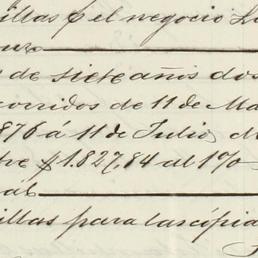 illas (el negocio L
de siete años dos
corridos de 11 de Ma
876 á 11 de Julio
re $1.827,84 al 1%
al
illas para las cópia